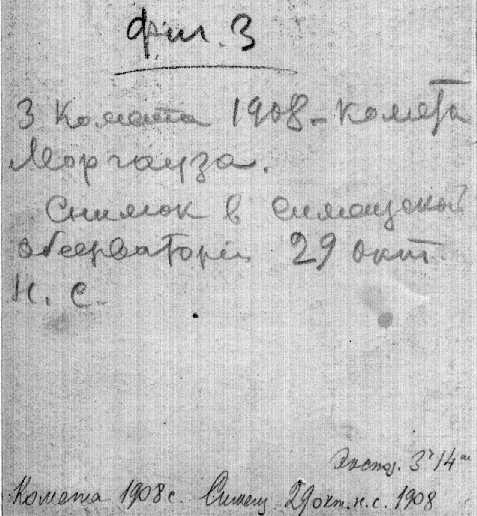 Фиг. 3
3 Комета 1908 - комета
Моргауза.
Снимок в Симеизской
обсерватории 29 окт
Н. С.
Экспоз. 3ч 14м
Комета 1908 c. Симеиз 29 окт. н. с. 1908